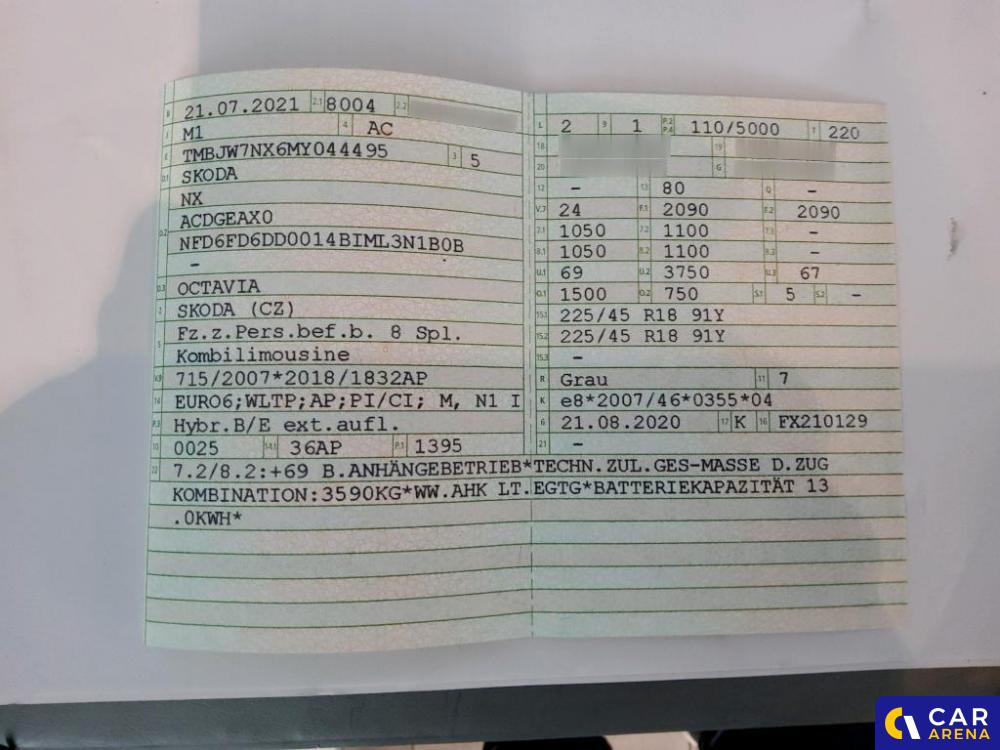 B 21.07.2021 2.1 8004 2.2
J M1 4 AC
E TMBJW7NX6MY044495 3 5
D.1 SKODA
NX
D.2 ACDGEAX0
NFD6FD6DD0014BIML3N1B0B
–
D.3 OCTAVIA
2 SKODA (CZ)
5 Fz.z.Pers.bef.b. 8 Spl.
Kombilimousine
V.9 715/2007*2018/1832AP
14 EURO6;WLTP;AP;PI/CI; M, N1 I
P.3 Hybr.B/E ext.aufl.
10 0025 14.1 36AP P.1 1395
L 2 9 1 P.2 P.4 110/5000 T 220
18 19
20 G
12 – 13 80 Q –
V.7 24 F.1 2090 F.2 2090
7.1 1050 7.2 1100 7.3 –
8.1 1050 8.2 1100 8.3 –
U.1 69 U.2 3750 U.3 67
O.1 1500 O.2 750 S.1 5 S.2 –
15.1 225/45 R18 91Y
15.2 225/45 R18 91Y
15.3 –
R Grau 11 7
K e8*2007/46*0355*04
6 21.08.2020 17 K 16 FX210129
21 –
22 7.2/8.2:+69 B.ANHÄNGEBETRIEB*TECHN.ZUL.GES-MASSE D.ZUG
KOMBINATION:3590KG*WW.AHK LT.EGTG*BATTERIEKAPAZITÄT 13
.0KWH*
CAR
ARENA